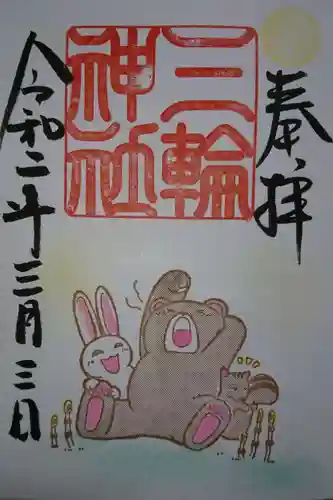 奉拝
三輪
神社
令和二年三月三日